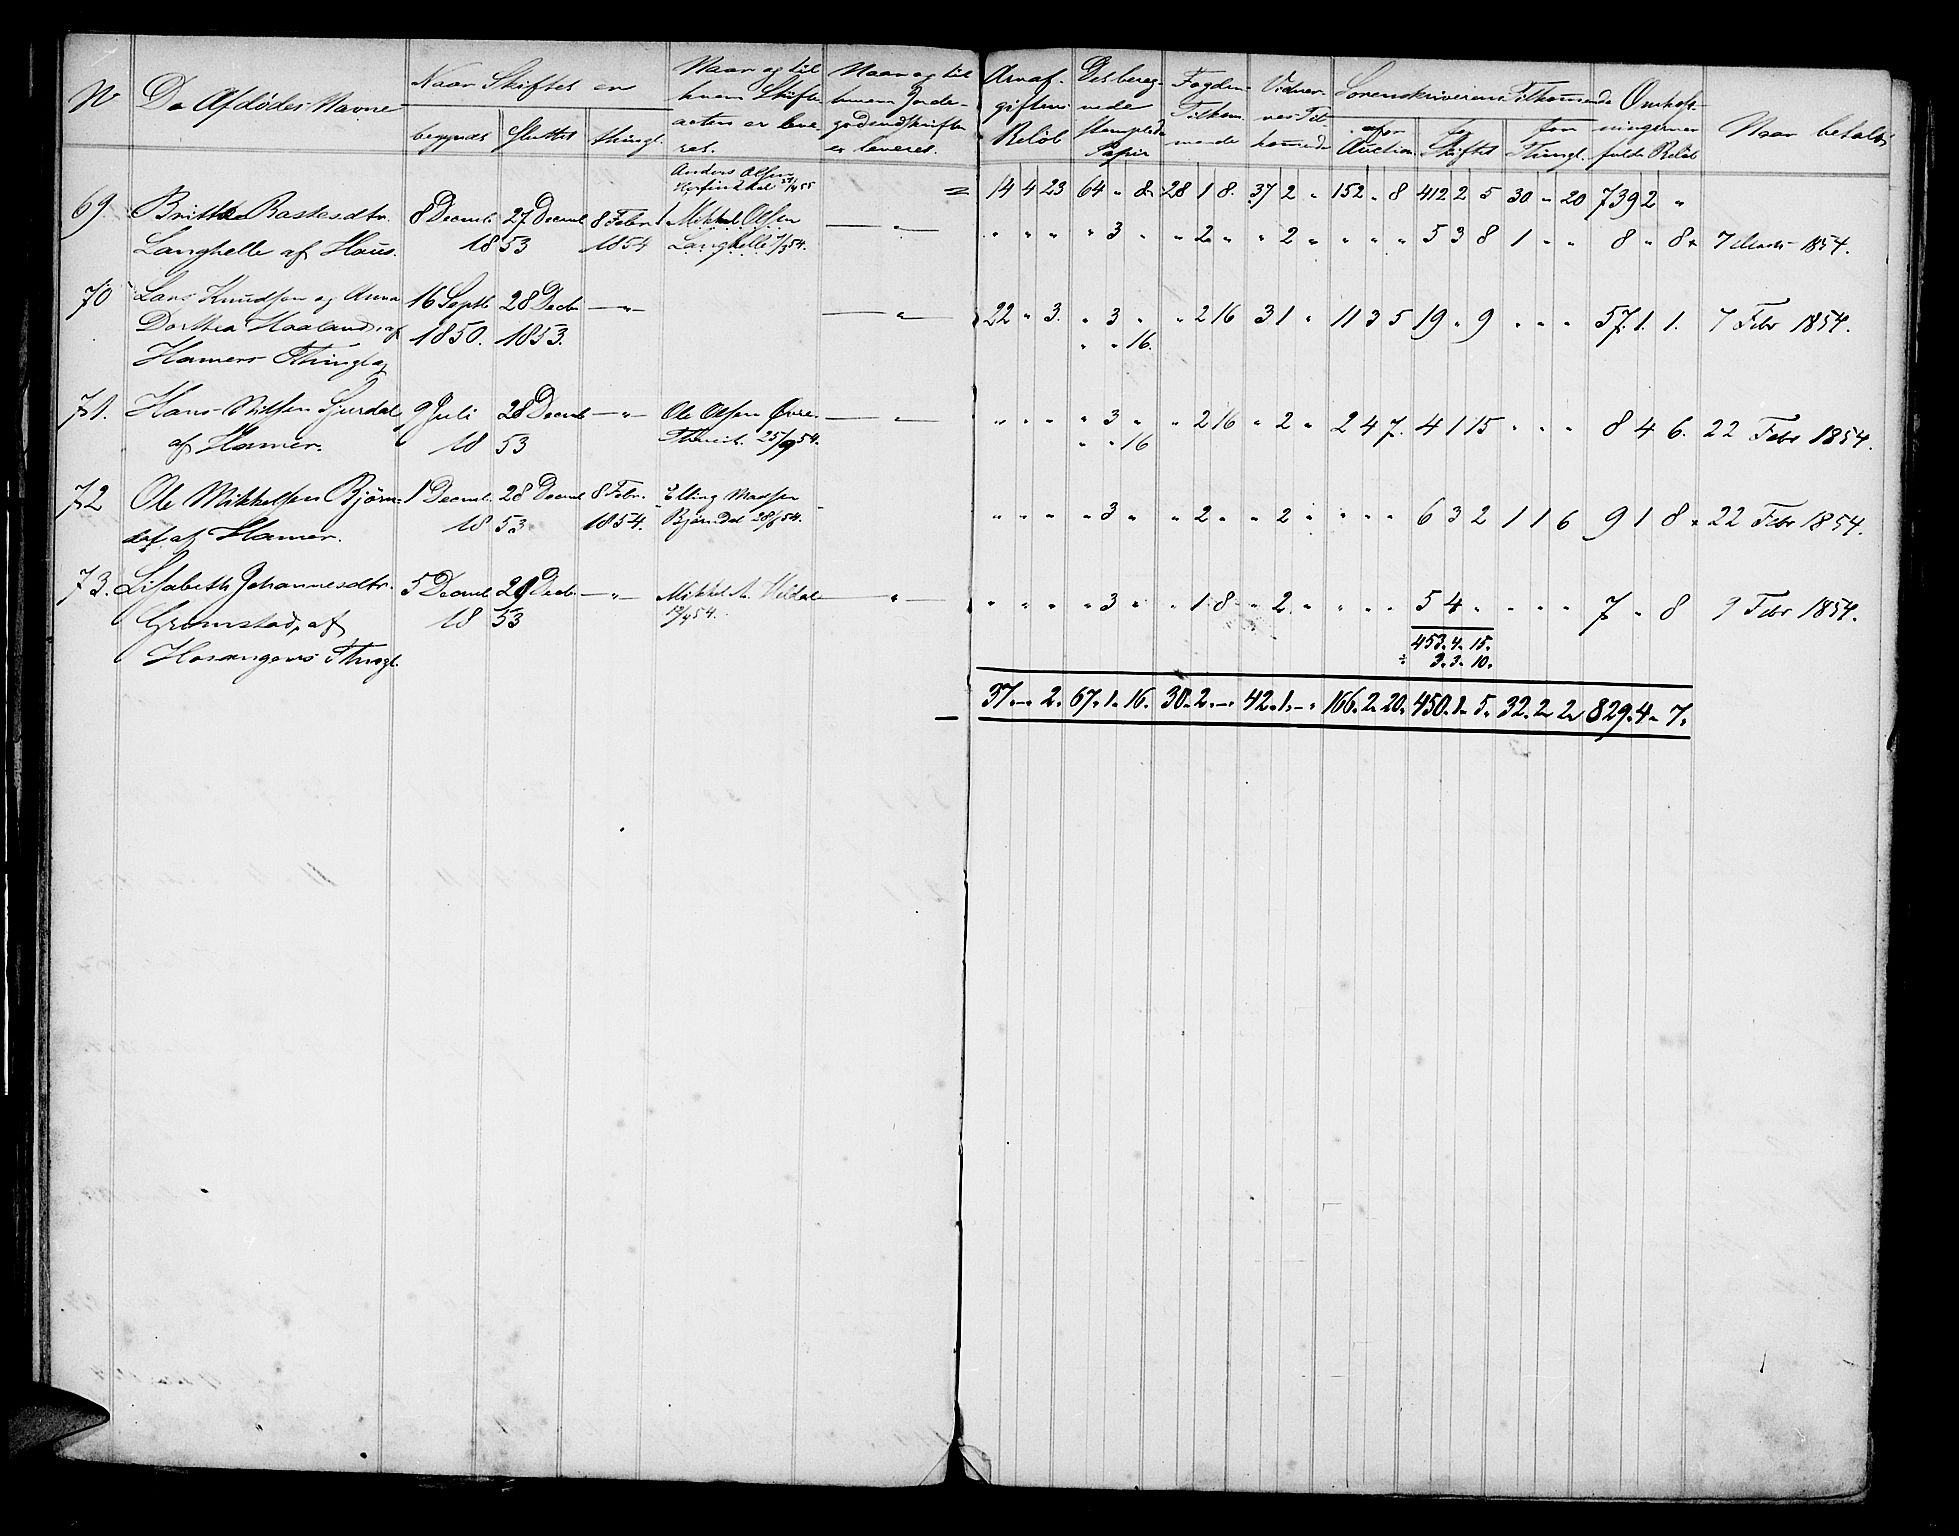 N De Afdödes Navne Naar Skiftet er Naar og til hvem Skifteacten er leveret. Naar og til hvem Jordegodsudskriften er leveret. Arveafgiftens Belöb Det beregnede stemplede Papir Fogdens Tilkommende Vidnernes Tilkommende Sorenskriverens Tilkommende Omkostningernes fulde Belöb Naar betalt
begyndt Sluttet thingl. for Auction for Skiftet for Thingl.
Anders Olsen
14 4 23 64 " 8 28 1 8. 37 2 " 152 " 8 412 2 5 30 " 20 739 2 "
69. Britte Rastesdtr. 8 Decmb. 27 Decmb 8 Febr. Mikkel Olsen — " —
Langhelle af Haus. 18 53 1854 Langhelle 7/3 54. " " " " 3 " " 2 " " 2 " " " " 5 3 8 1 " " 8 " 8 7 Marts 1854.
70 Lars Knudsen og Anna 16 Septb 28 Decb — " — — " —
Dorthea Haaland, af 1850. 1853. 22 " 3. " 3 " " 2 16 3 1 " 11 3 5 19 " 9 " " " 57. 1. 1. 7 Febr 1854.
Hamers Thinglag " " 16.
71. Hans Nilsen Gjerdal 9 Juli 28 Decmb — " — Ole Olsen Övre — " —
af Hamer. 18 53 25/9 54. " " " " 3 " " 2 16 " 2 " 2 4 7. 4 1 15 " " " 8 4 6. 22 Febr 1854.
" " 16
72 Ole Mikkelsen Björn- 1 Decmb. 28 Decmb 8 Febr. Elling Madsen
dal af Hamer. 18 53 1854. Björndal 28/6 54. " " " " 3 " " 2 " " 2 " " " " 6 3 2 1 1 6 9 1 8 22 Febr 1854.
73. Lisabeth Johannesdtr. 5 Decmb 29 Decb. — " — Mikkel A. Vikdal — " —
Grimstad, af 18 53 " " " " 3 " " 1 8 " 2 " " " " 5 4 " " " " 7 " 8 9 Febr 1854.
Hosangers Thingl. 453. 4. 15.
÷ 3. 3. 10.
37. – 2. 67. 1. 16. 30. 2. – 42. 1. – 166. 2. 20. 450. 1. 5. 32. 2. 2. 829. 4. 7.